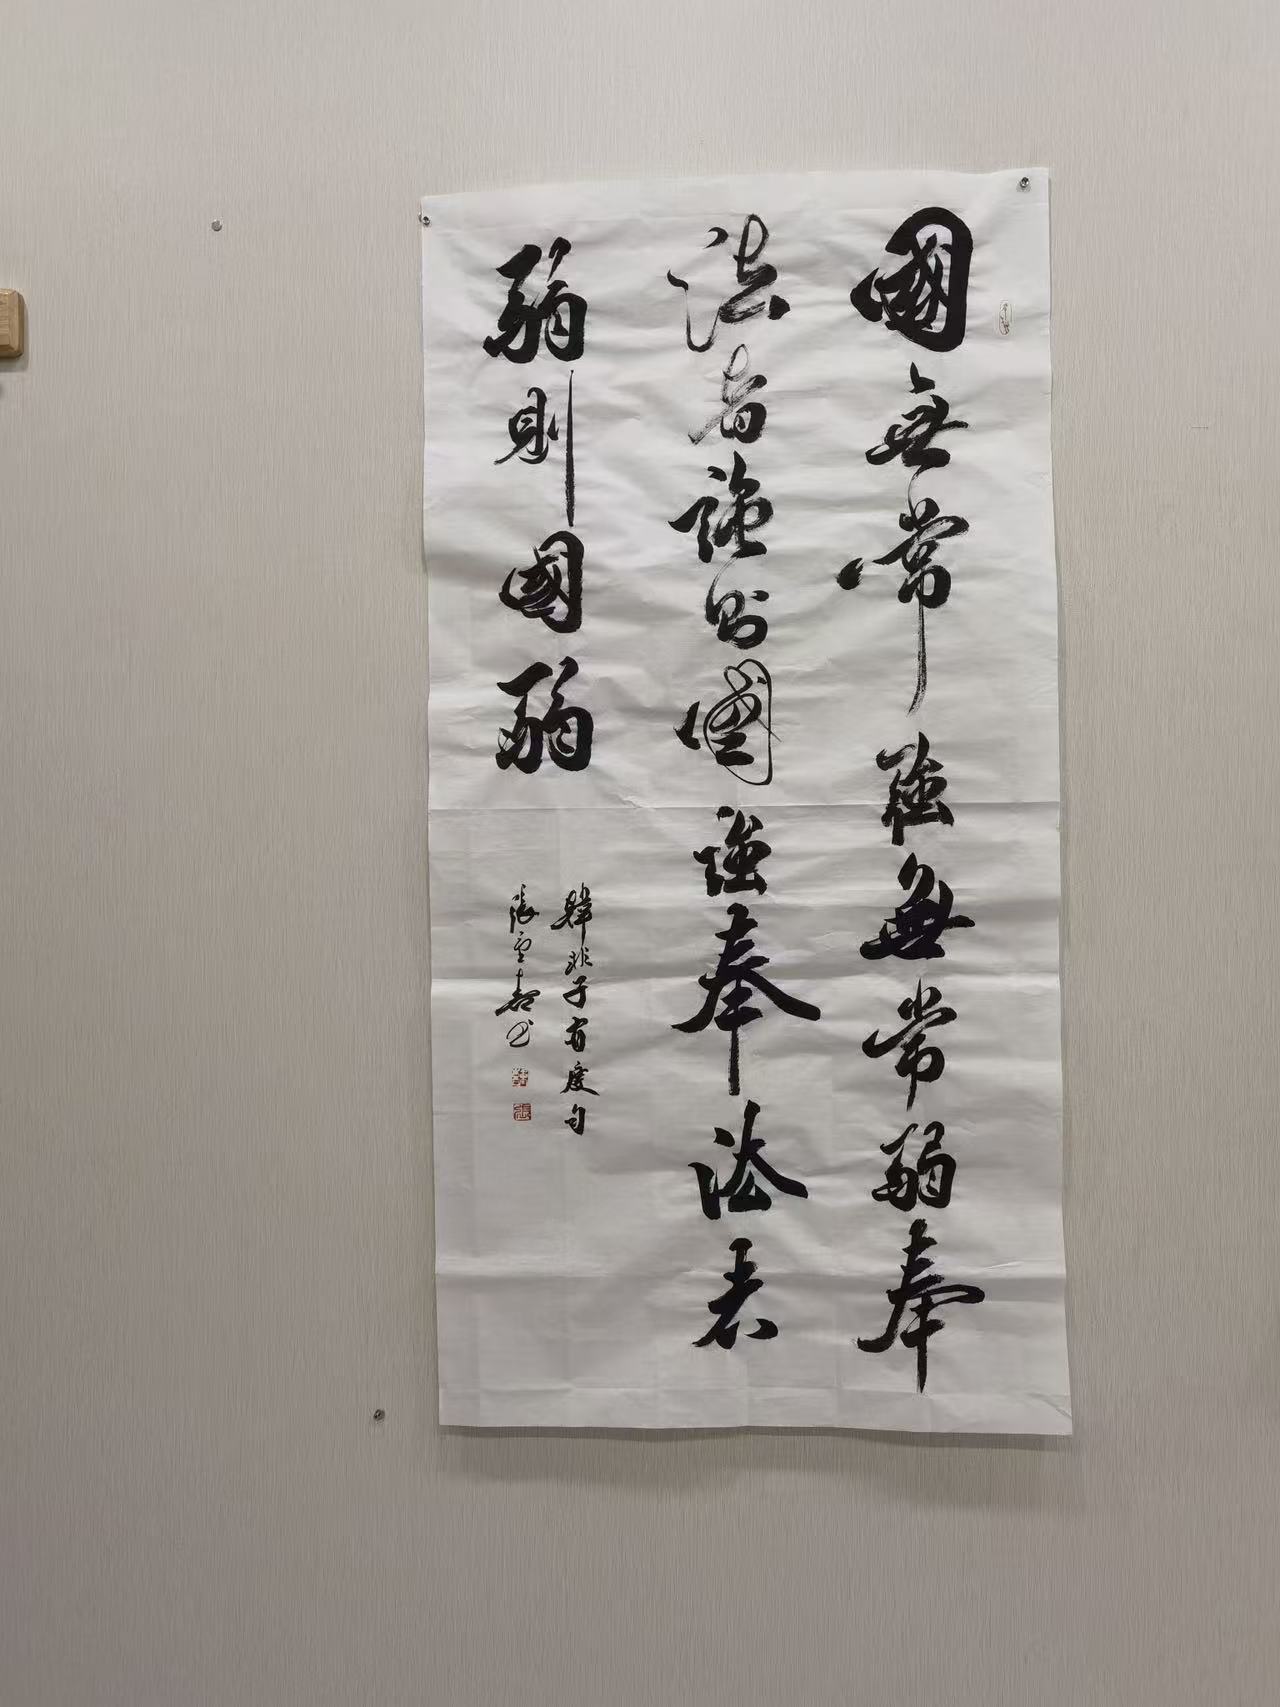 國無常強無常弱奉
法者強則國強奉法者
弱則國弱
韓非子有度句
張雲起书